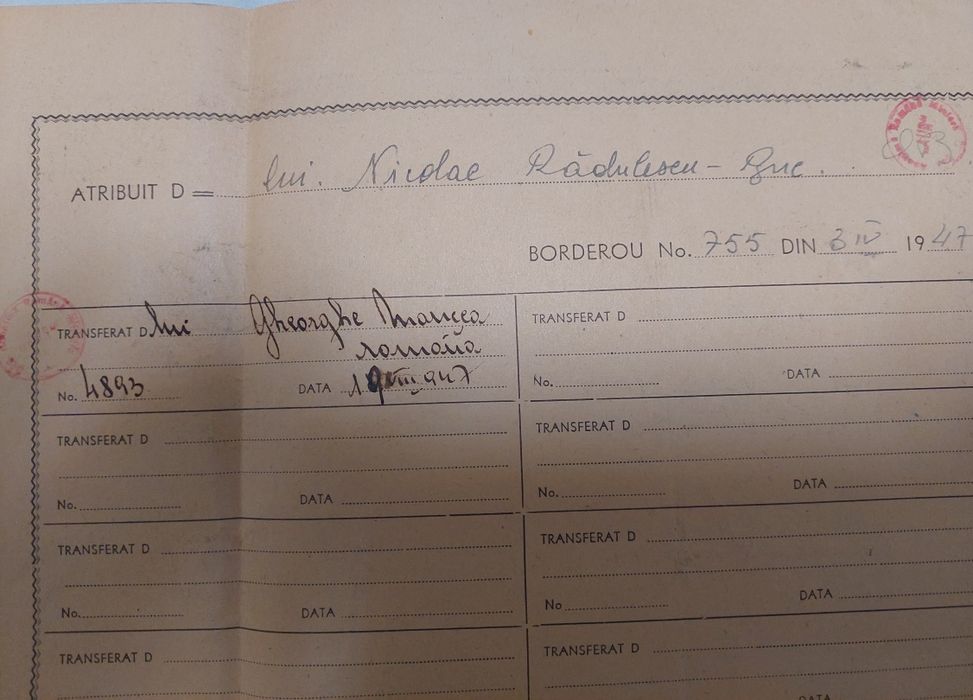 ATRIBUIT D = lui. Nicolae Rădulescu - Buc.
BORDEROU No. 755 DIN 3 IV 1947
TRANSFERAT D lui Gheorghe
română
No. 4893 DATA VIII 947
TRANSFERAT D
No. DATA
TRANSFERAT D
No. DATA
TRANSFERAT D
No. DATA
TRANSFERAT D
No. DATA
TRANSFERAT D
No DATA
TRANSFERAT D
TRANSFERAT D
DATA